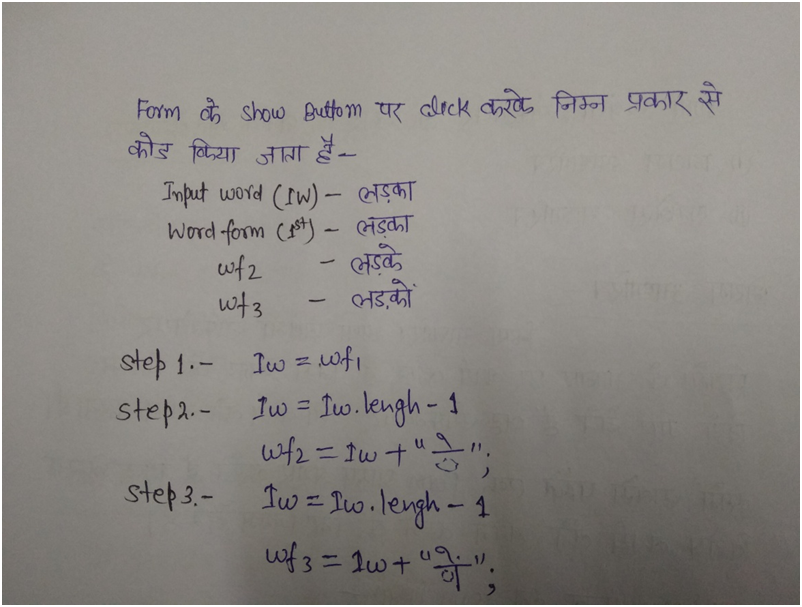 Form के show Buttom पर click करके निम्न प्रकार से
कोड किया जाता है -
Input word (IW) - लड़का
Word form (1st) - लड़का
wf2 - लड़के
wf3 - लड़कों
Step 1.- Iw = wf1
Step2.- Iw = Iw.lengh - 1
wf2 = Iw + "े";
Step 3.- Iw = Iw.lengh - 1
wf3 = Iw + "ों";